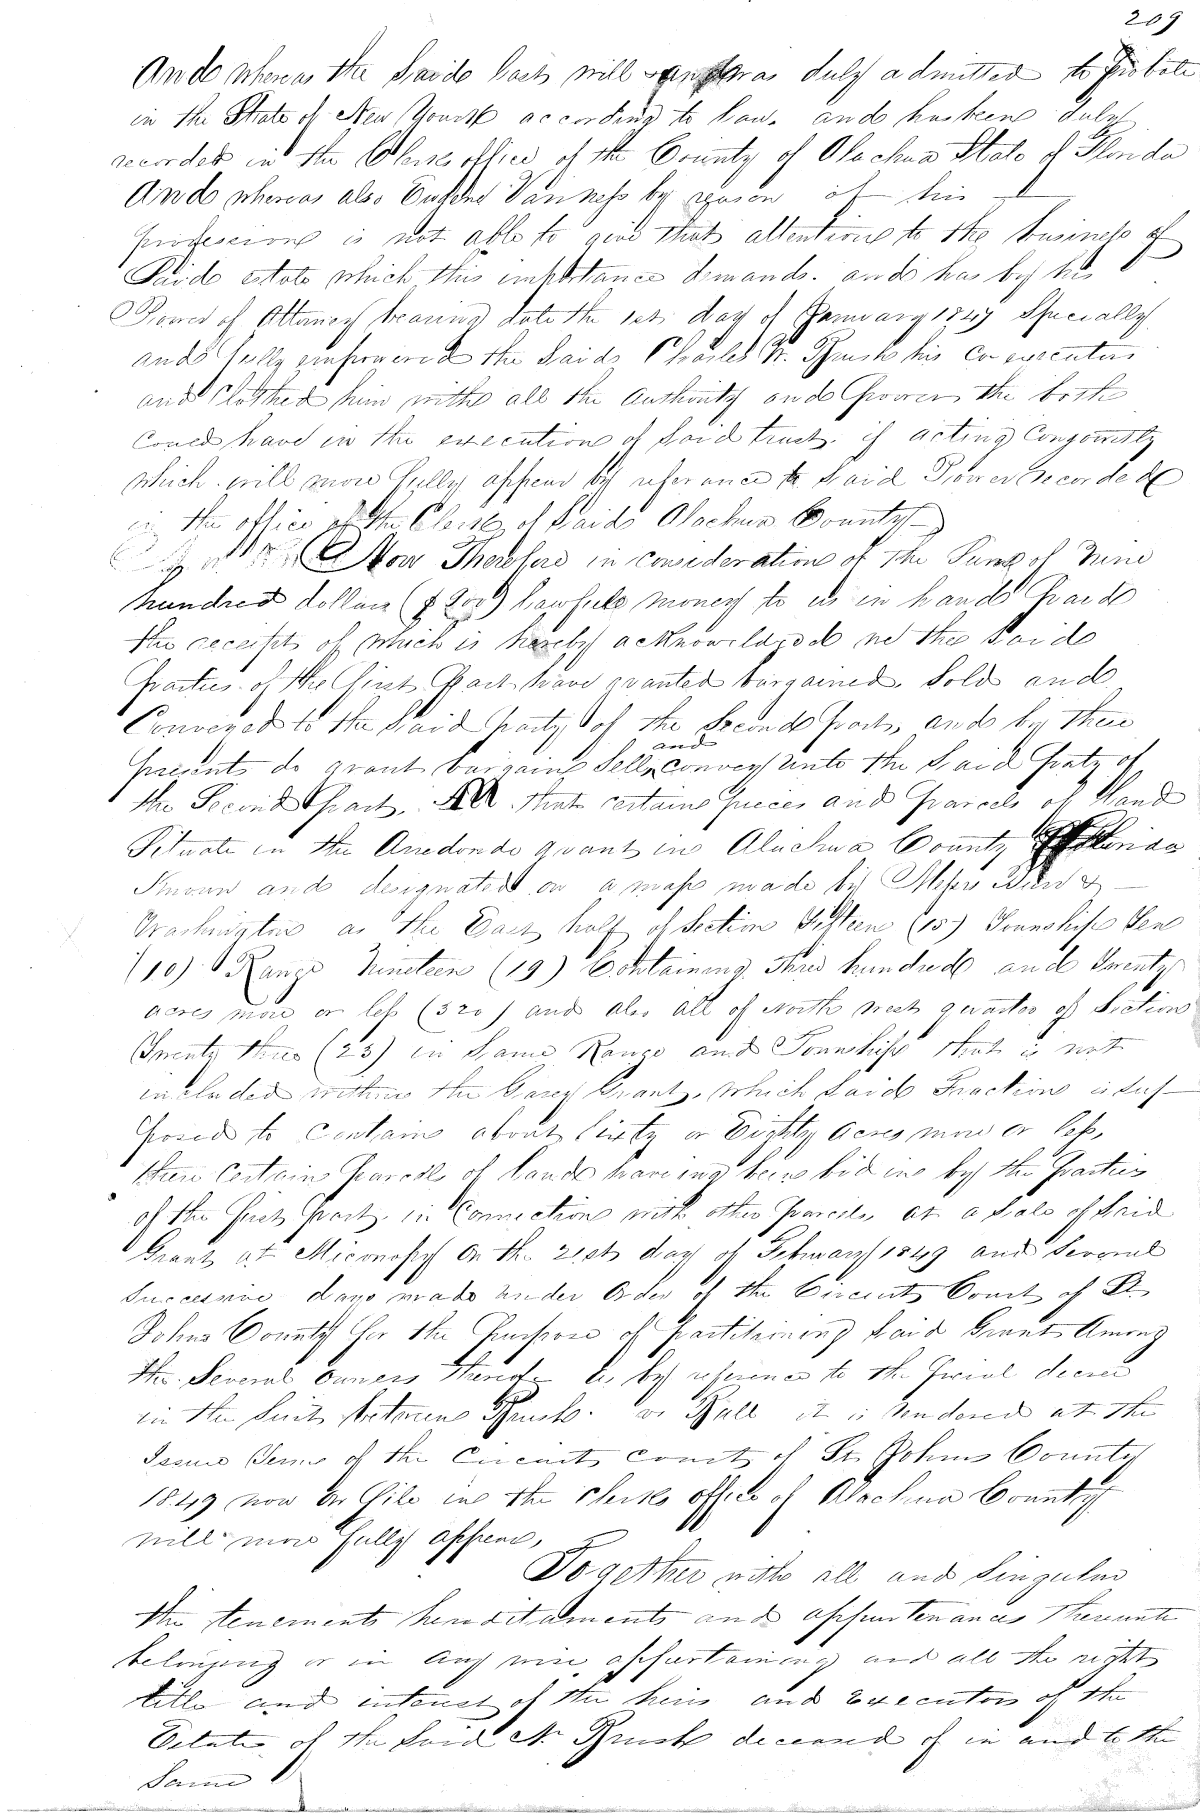 209
And whereas the Said last will was duly admitted to Probate
in the State of New Yourk according to law, and has been duly
recorded in the Clerks office of the County of Alachua State of Florida
And whereas also Eugene Van ness by reason of his
professione is not able to give that attention to the business of
Said estate which this importance demands. and has by his
Power of Attorney bearing date the 1st day of January 1847 Specially
and fully empowered the Said Charles W. Brush his Co executors
and Clothed him with all the authority and Power the both
could have in the execution of Said trust. if acting Congointly
which will more fully appear by referance to Said Power recorded
in the office of the Clerk of Said Alachua County
Now Therefore in consideration of the Sum of Nine
hundred dollars ($900) lawfule money to us in hand Paid
the receipt of which is hereby acknowildged we the Said
Parties of the first Part have granted bargained Sold and
Conveyed to the Said Party of the Second Part, and by these
and
presents do grant bargain Sell convey unto the Said Paty of
the Second Part, All that certain pieces and Parcels of Land
Situate in the Arredondo grant in Alachua County Florida
Known and designated on a map made by Messrs &
Washington as the East half of Section Fifteen (15) Township Ten
(10) Range Nineteen (19) Containing Three hundred and Twenty
acres more or less (320) and also all of North west quarter of Section
Twenty three (23) in Same Range and Township that is not
included within the Garey Grant, which Said Fraction is sup-
posed to contain about Sixty or Eighty acres more or less,
these certain Parcels of land haveing been bid in by the Parties
of the first Part in Connection with other Parcels, at a Sale of Said
Grant at Miconopy on the 21st day of February 1849 and Several
Successive days made under Order of the Circuit Court of St.
Johns County for the Purpose of partitining Said Grant Among
the Several owners thereof as by reference to the Finial decree
in the Suit between Brush vs Ball it is Rendered at the
Issue Term of the Circuit court of St Johns County
1849 now on file in the Clerks office of Alachua County
will more fully appear,
Together with all and Singular
the tenements hereditaments and appurtenances thereunto
belonging or in any wise appertaining and all the right
title and interest of the heirs and Executors of the
Estate of the Said N Brush deceased of in and to the
Same